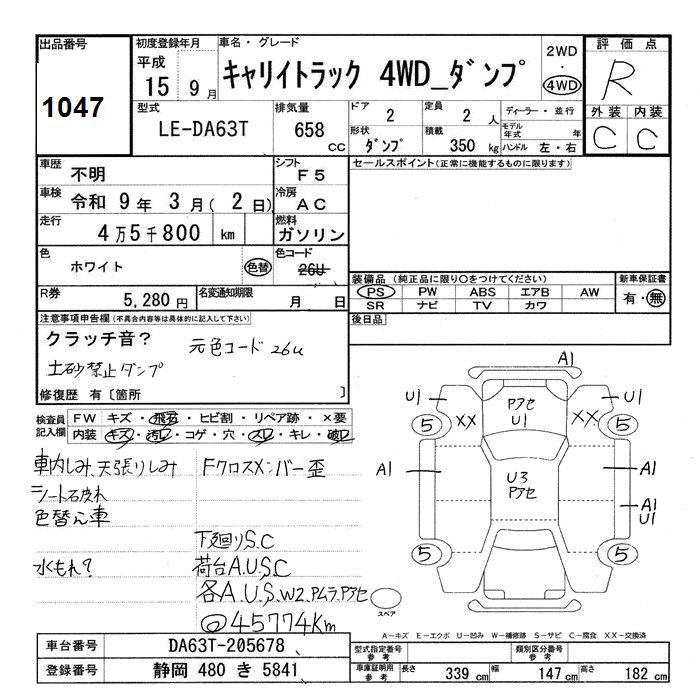 出品番号
1047
初度登録年月
平成
15年 9月
車名・グレード
キャリイトラック 4WD_ダンプ
2WD
・
4WD
評価点
R
外装 内装
C C
型式
LE-DA63T
排気量
658 CC
ドア
2
定員
2 人
形状
ダンプ
積載
350 kg
ディーラー・並行
モデル年式 年
ハンドル 左・右
車歴
不明
シフト
F5
車検
令和 9年 3月( 2日)
冷房
AC
走行
4万5千800 km
燃料
ガソリン
色
ホワイト
色替
色コード
26U
R券
5,280円
名変通知期限
月 日
セールスポイント(正常に機能するものに限ります)
装備品 (純正品に限り〇をつけてください)
PS PW ABS エアB AW
SR ナビ TV カワ
新車保証書
有・無
後日品
注意事項申告欄(不具合内容等は具体的に記入して下さい)
クラッチ音?
元色コード 26u
土砂禁止ダンプ
修復歴 有〔箇所 〕
検査員記入欄
FW キズ・飛石・ヒビ割・リペア跡・×要
内装 キズ・汚レ・コゲ・穴・スレ・キレ・破レ
車内しみ、天張りしみ
Fクロスメンバー歪
シート破れ
色替え車
下廻りS.C
水もれ?
荷台A.U.S.C
各A.U.S.W2.PムラPアセ
◎45774Km
A1
U1
XX
5
Pアセ
U1
XX
U1
5
A1
U3
Pアセ
A1
A1
U1
5
5
スペア
A-キズ E-エクボ U-凹み W-補修跡 S-サビ C-腐食 XX-交換済
車台番号
DA63T-205678
登録番号
静岡 480 き 5841
型式指定番号
参考
類別区分番号
参考
車庫証明用
参考
長さ 339 cm 幅 147 cm 高さ 182 cm